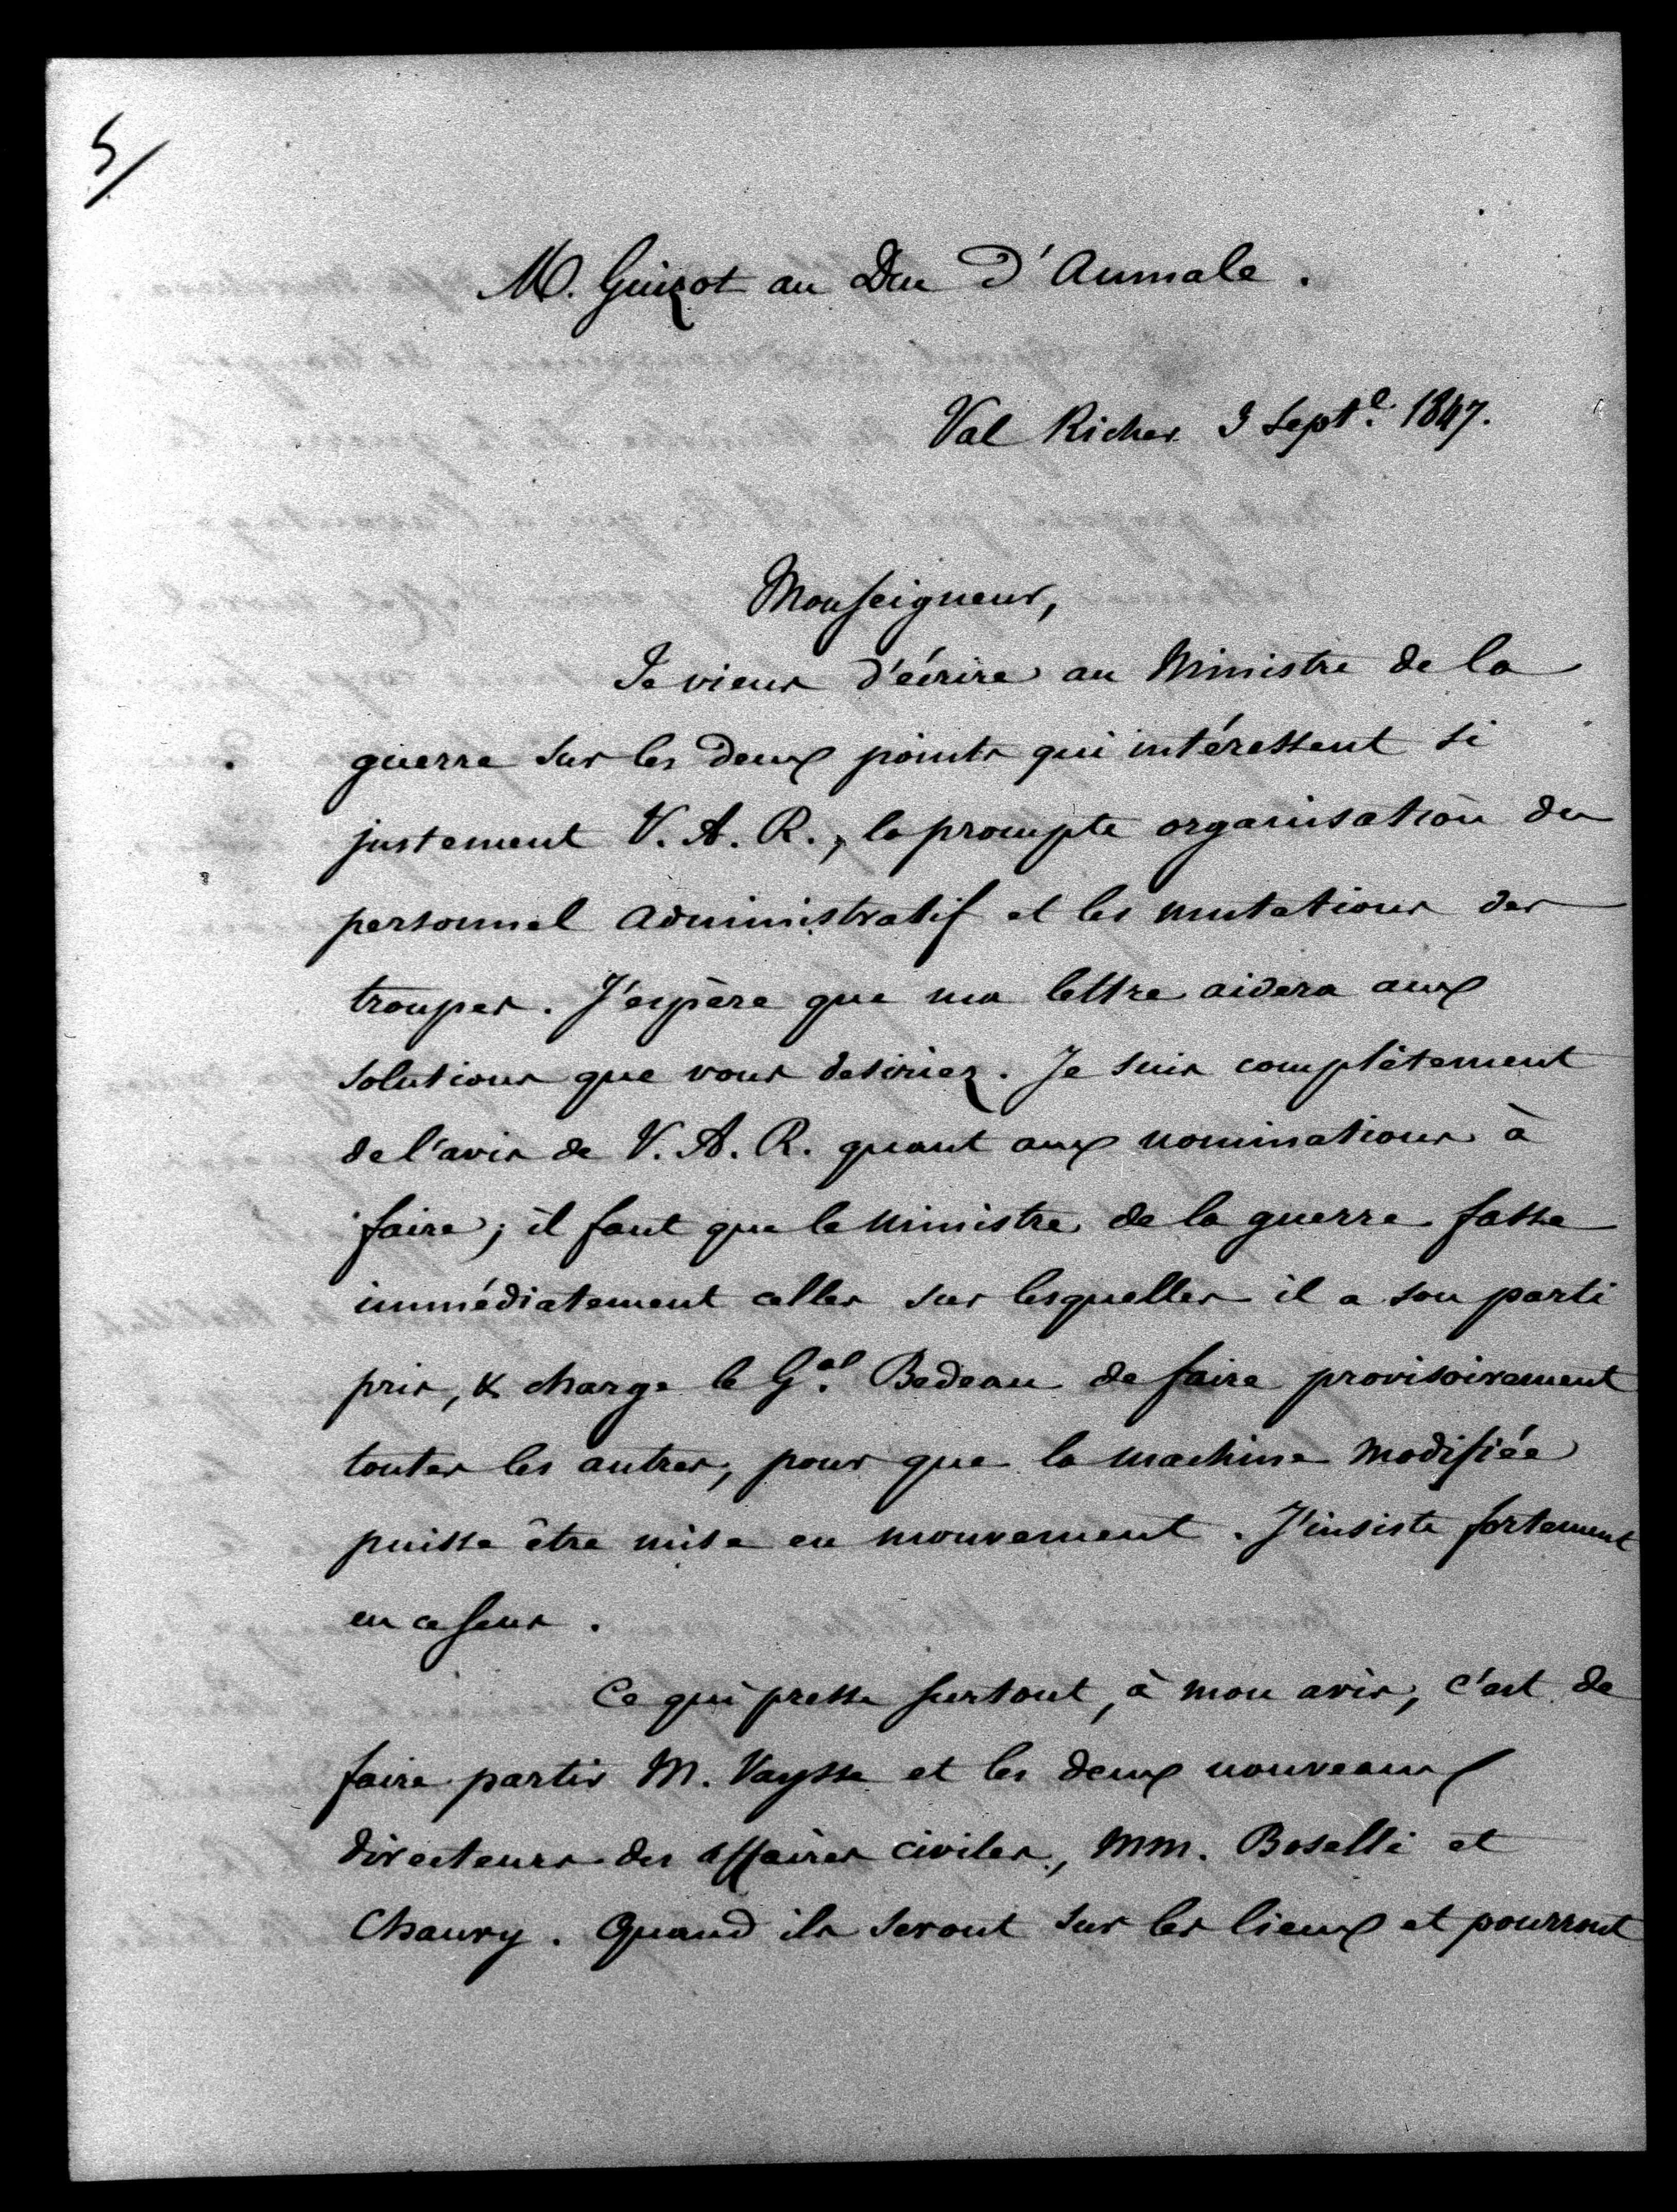 5/
M. Guizot au Duc d'Aumale.
Val Richer 3 Sept.e 1847.
Monseigneur,
Je viens d'écrire au Ministre de la
guerre sur les deux points qui intéressent si
justement V. A. R., la prompte organisation du
personnel administratif et les mutations des
troupes. J'espère que ma lettre aidera aux
solutions que vous desiriez. Je suis complètement
de l'avis de V. A. R. quant aux nominations à
faire; il faut que le Ministre de la guerre fasse
immédiatement celles sur lesquelles il a son parti
pris, & charge le Gal. Bedeau de faire provisoirement
toutes les autres, pour que la machine modifiée
puisse être mise en mouvement. J'insiste fortement
en ce sens.
Ce qui presse surtout, à mon avis, c'est de
faire partir M. Vaysse et les deux nouveaux
directeurs des affaires civiles, MM. Boselli et
Chauvy. Quand ils seront sur les lieux et pourront